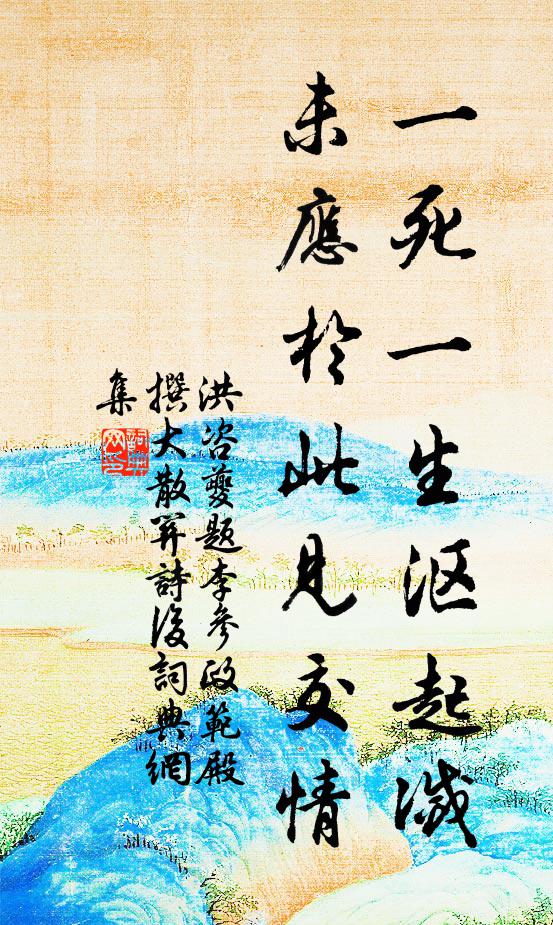 一死一生漚起滅
未應於此見交情
洪咨夔題李參政範殿
撰大散關詩後詞典網
集